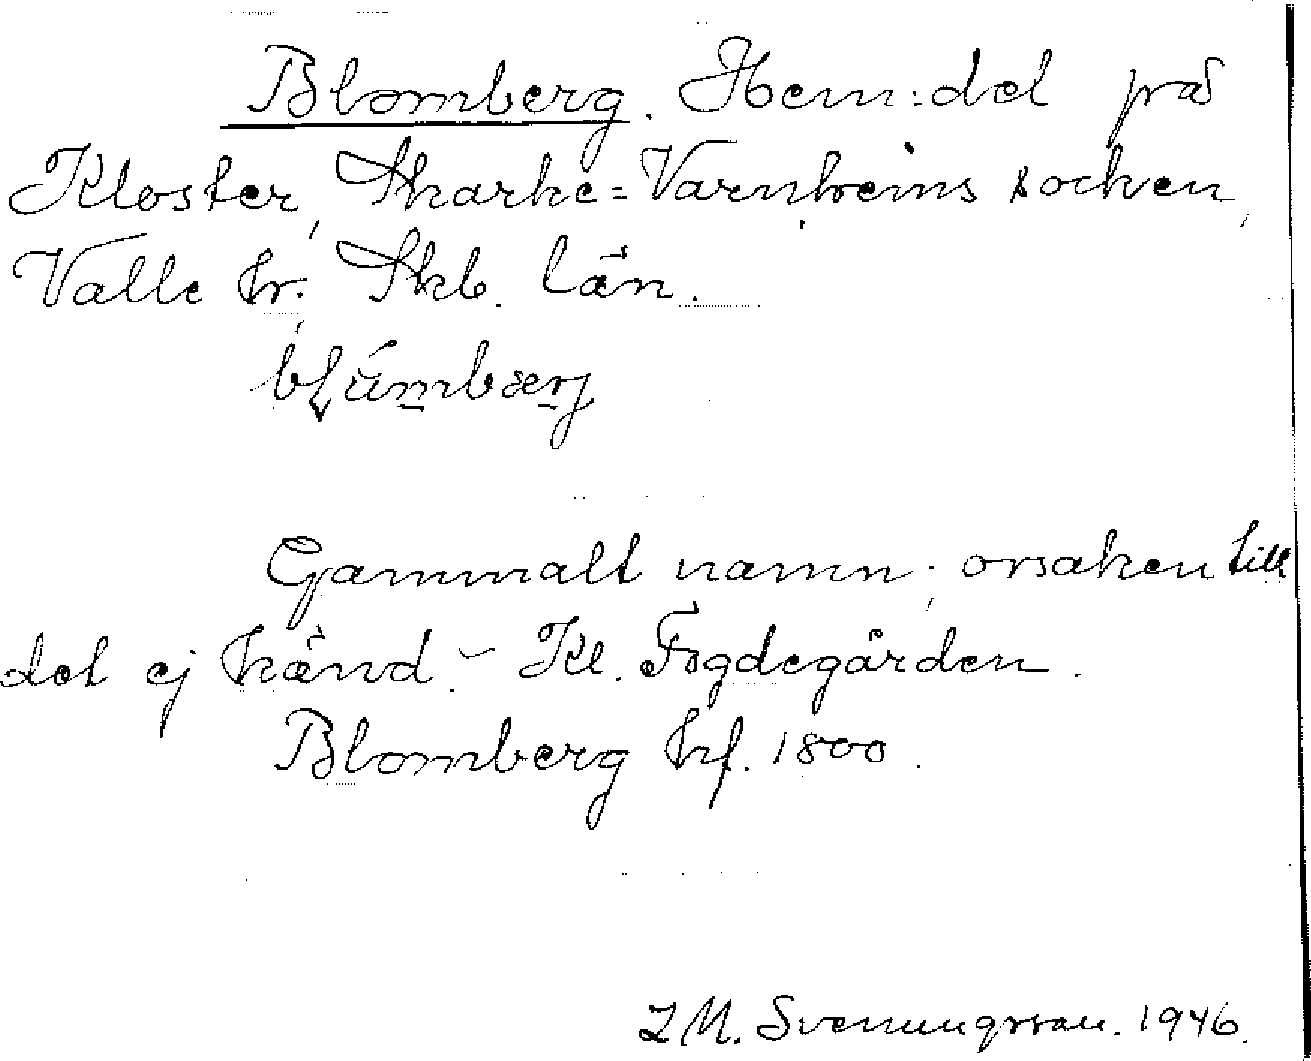 Blomberg. Hem:del på
Kloster, Skarke=Varnhems socken,
Valle hr. Skb. län.
Gammalt namn; orsaken till
det ej känd. - Kl. Fogdegården.
Blomberg hf. 1800.
I M. Svenungsson. 1946.